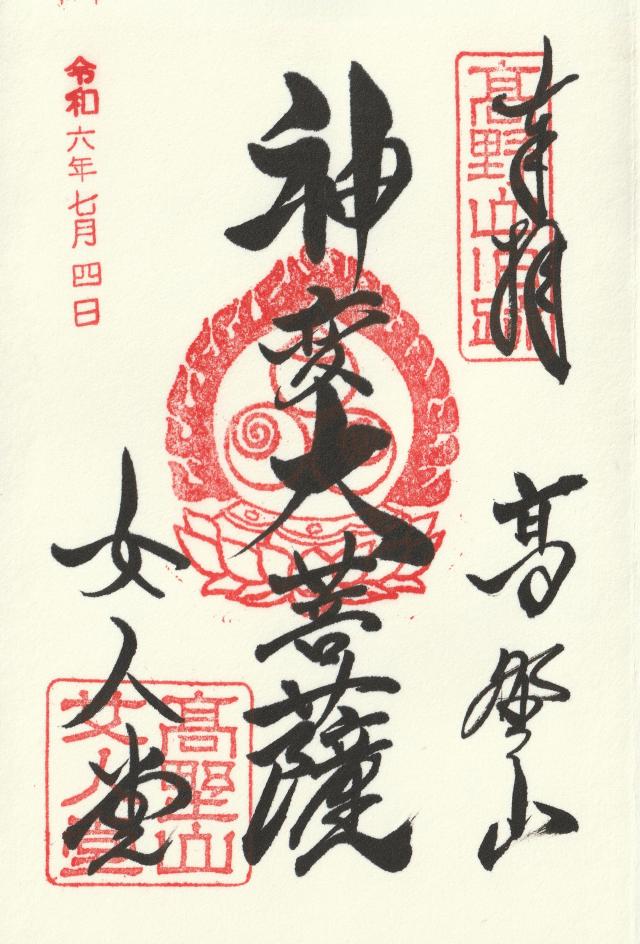 奉拝
高野山旧跡
高野山
神変大菩薩
女人堂
高野山
女人堂
令和六年七月四日